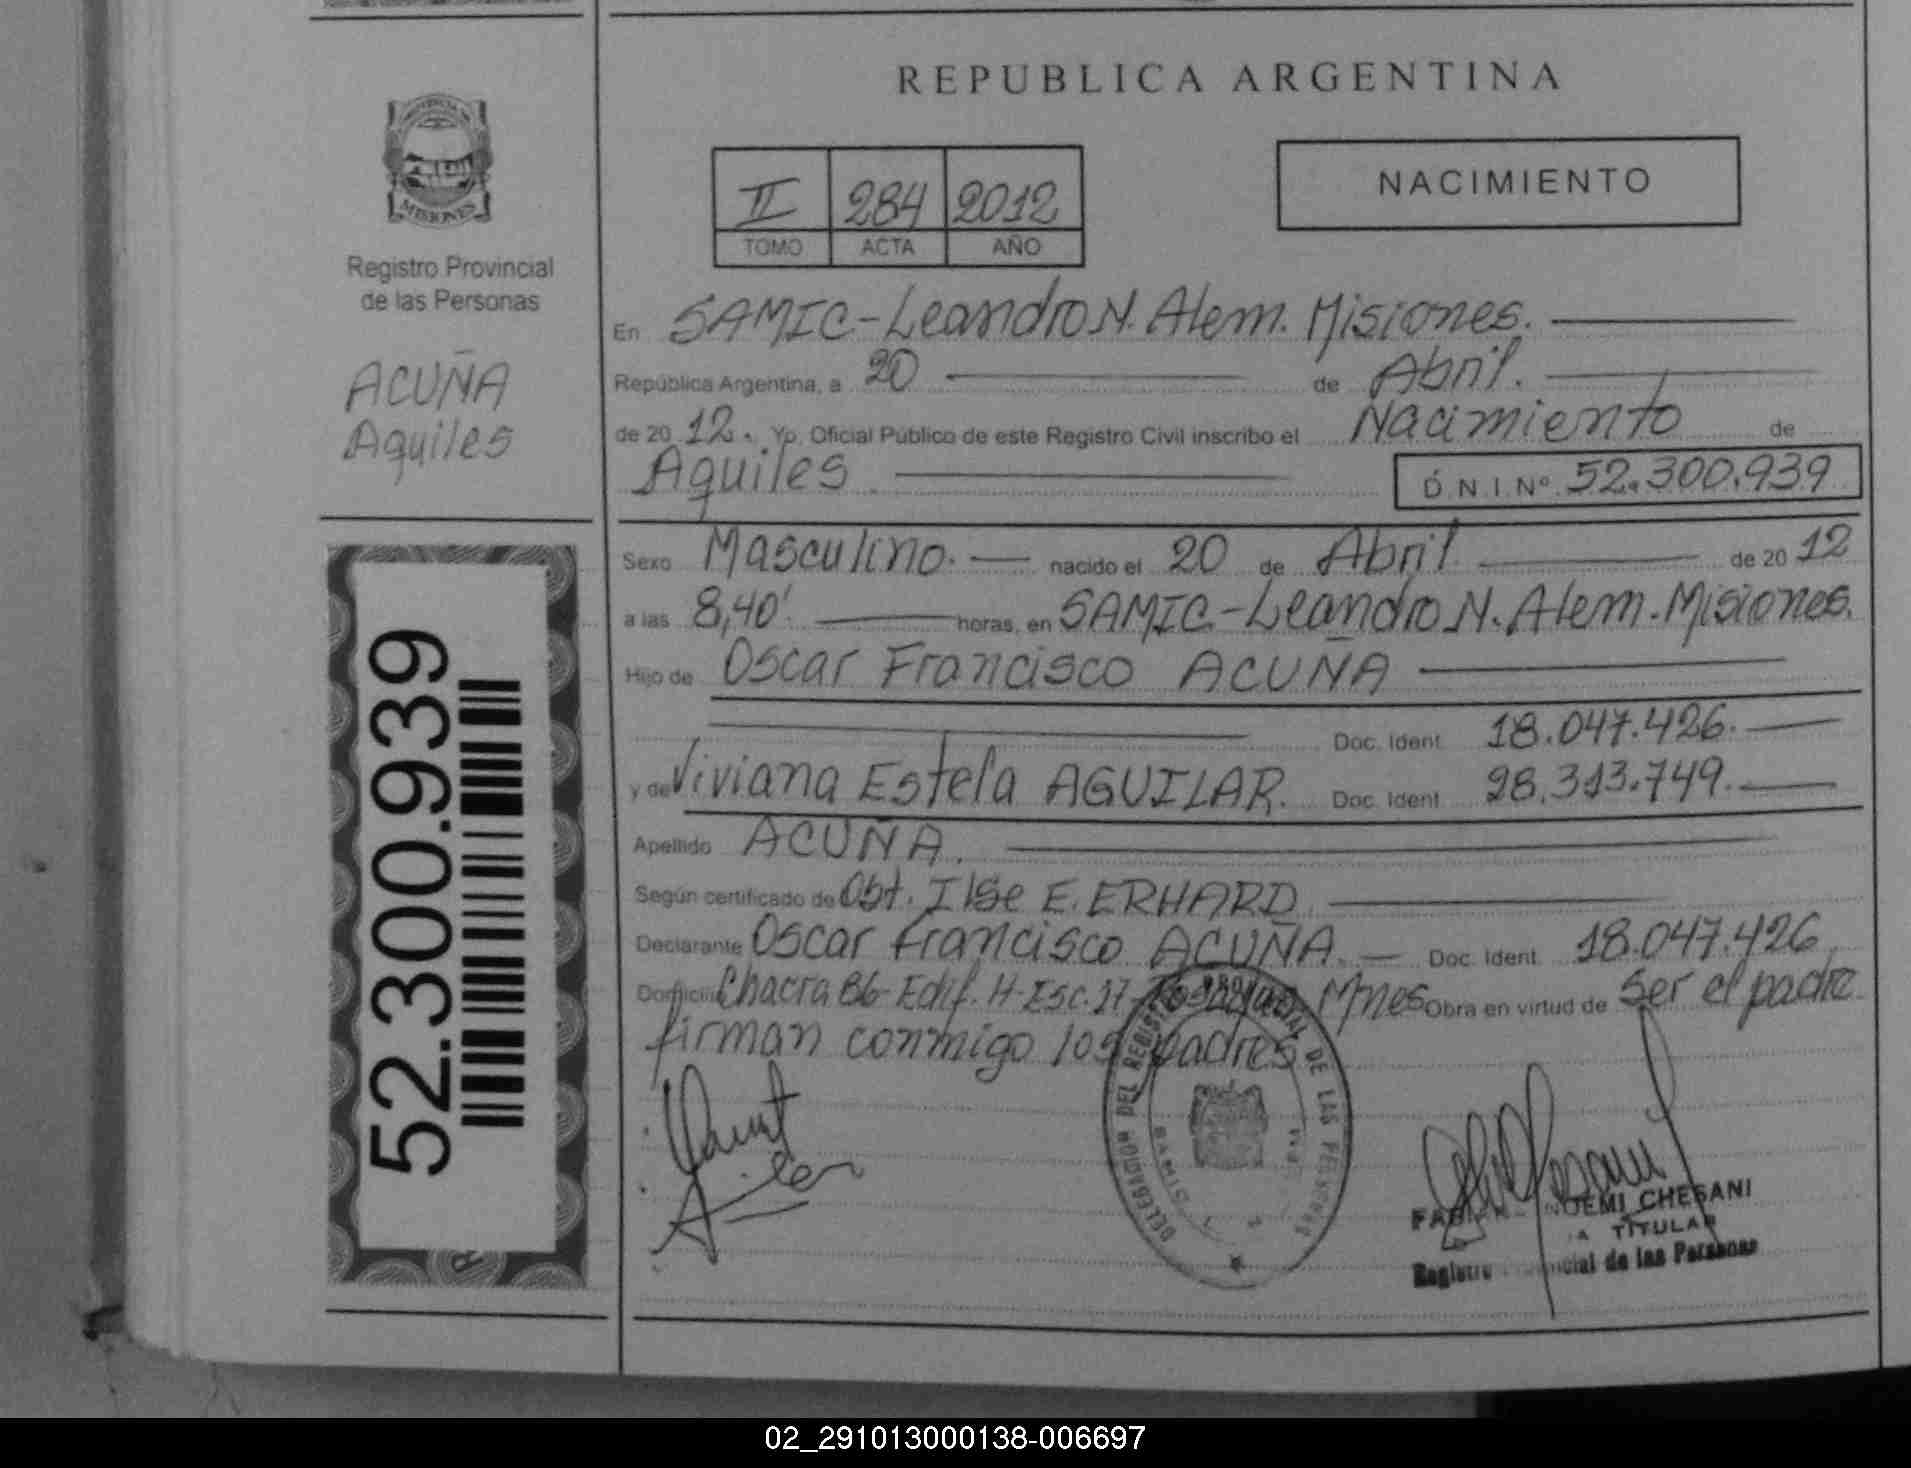 REPUBLICA ARGENTINA
NACIMIENTO
II 284 2012
TOMO ACTA AÑO
MISIONES
Registro Provincial
de las Personas
ACUÑA
Aquiles
En SAMIC-Leandro N. Alem. Misiones.
República Argentina, a 20 de Abril.
de 20 12. Yo, Oficial Público de este Registro Civil inscribo el Nacimiento de
Aquiles D.N.I.Nº 52.300.939
Sexo Masculino. nacido el 20 de Abril de 20 12
a las 8,40' horas, en SAMIC-Leandro N. Alem. Misiones.
Hijo de Oscar Francisco ACUÑA
Doc. Ident. 18.047.426.
y de Viviana Estela AGUILAR. Doc. Ident. 28.313.749.
Apellido ACUÑA.
Según certificado de Obst. Ilse E. ERHARD
Declarante Oscar Francisco ACUÑA. Doc. Ident. 18.047.426
Domicilio Chacra 86-Edif. H-Esc. 17-Posadas Mnes Obra en virtud de Ser el padre
firman conmigo los padres
52.300.939
DELEGACION DEL REGISTRO PROVINCIAL DE LAS PERSONAS
NOEMI CHESANI
TITULAR
Registro Provincial de las Personas
02_291013000138-006697